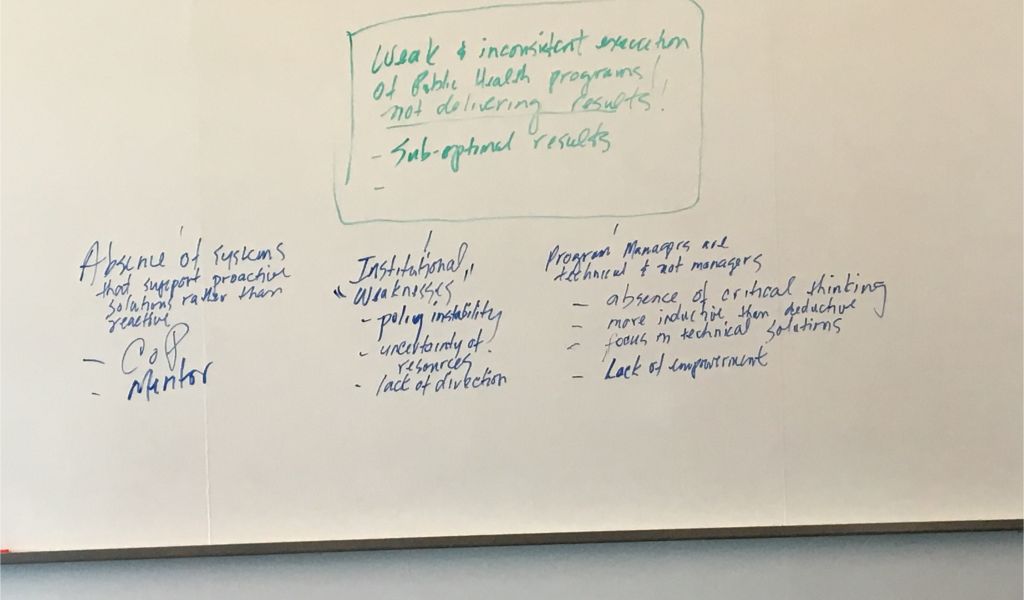 Weak & inconsistent execution
of Public Health programs/
not delivering results!!
- Sub-optimal results
-
Absence of systems
that support proactive
solutions rather than
reactive
- CoP
- Mentor
Institutional
"Weaknesses"
- policy instability
- uncertainty of
resources
- lack of direction
Program Managers are
technical & not managers
- absence of critical thinking
- more inductive than deductive
- focus on technical solutions
- Lack of empowerment